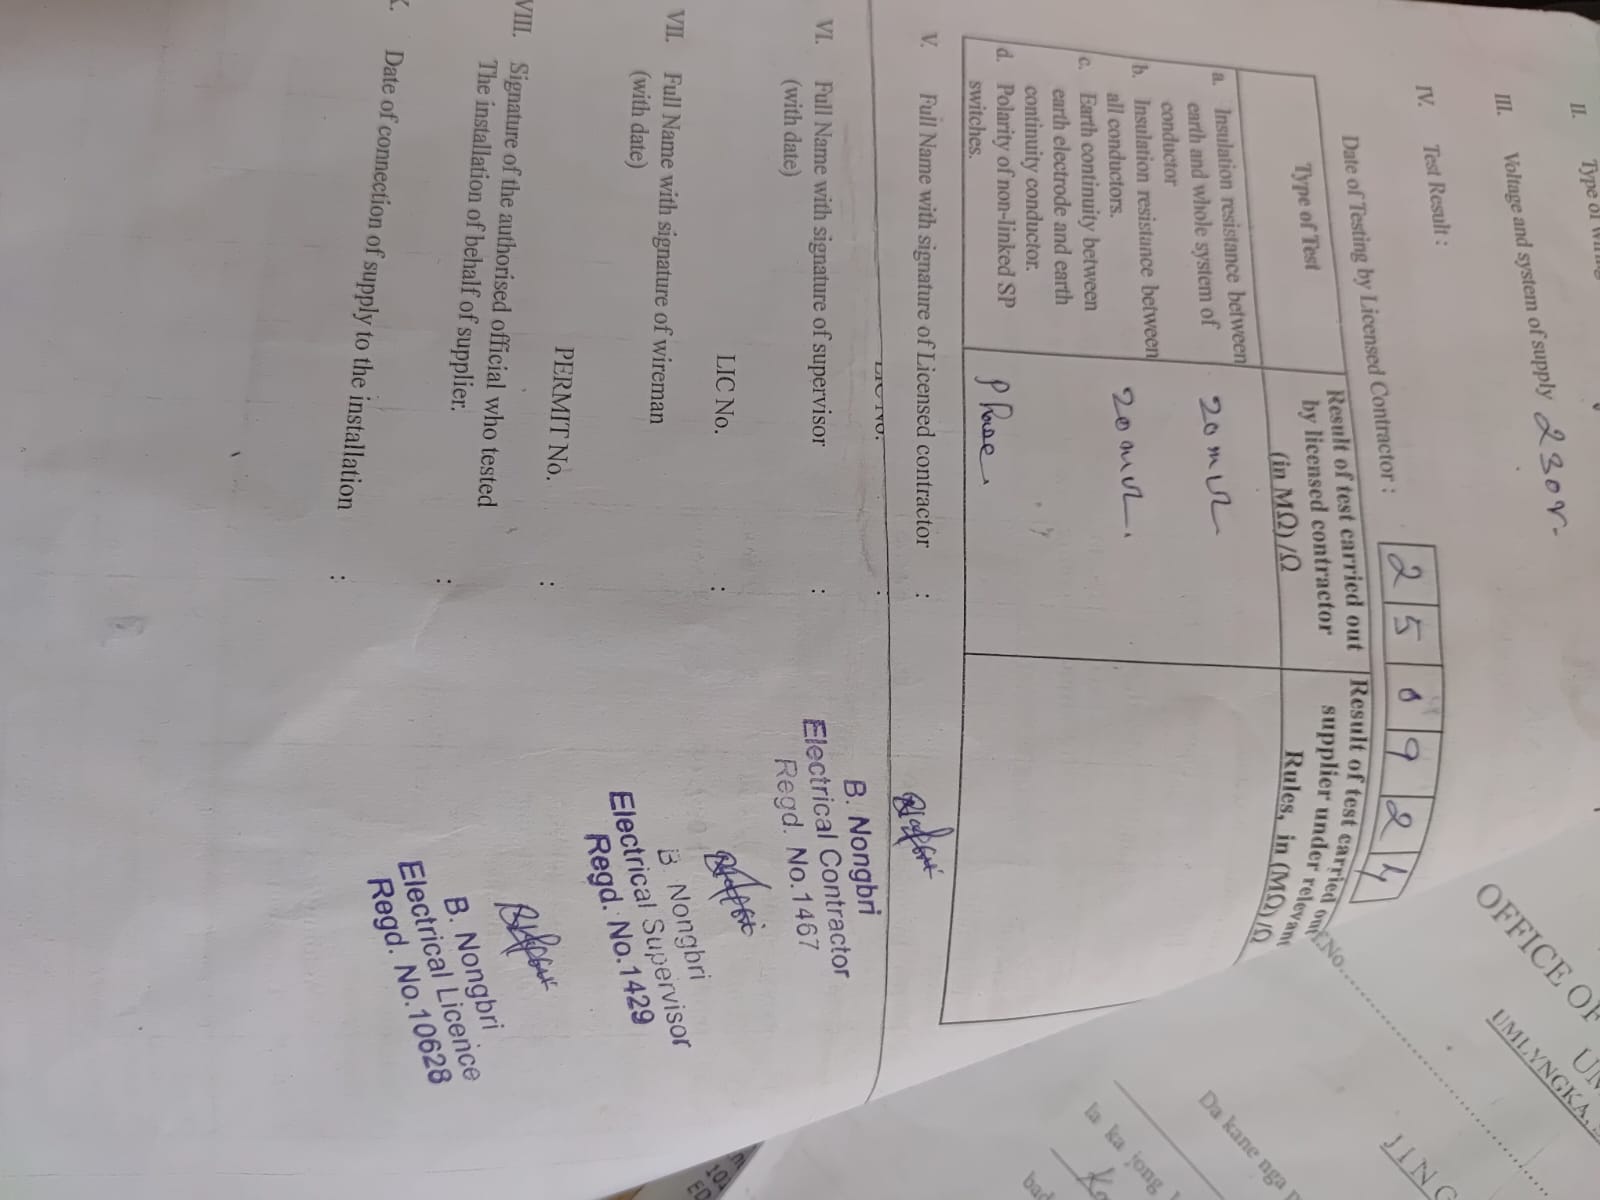 II. Type of
III. Voltage and system of supply 230V-
IV. Test Result :
Date of Testing by Licensed Contractor : 2 5 0 9 2 4
Type of Test
Result of test carried out
by licensed contractor
(in MΩ)/Ω
Result of test carried out
supplier under relevant
Rules, in (MΩ)/Ω
a. Insulation resistance between
earth and whole system of
conductor
20 mΩ
b. Insulation resistance between
all conductors.
20 mΩ.
c. Earth continuity between
earth electrode and earth
continuity conductor.
d. Polarity of non-linked SP
switches.
Phase
V. Full Name with signature of Licensed contractor :
B. Nongbri
Electrical Contractor
Regd. No.1467
VI. Full Name with signature of supervisor :
(with date)
LIC No. :
B. Nongbri
Electrical Supervisor
Regd. No.1429
VII. Full Name with signature of wireman
(with date)
PERMIT No. :
B. Nongbri
Electrical Licence
Regd. No.10628
VIII. Signature of the authorised official who tested
The installation of behalf of supplier. :
Date of connection of supply to the installation :
OFFICE OF
UMLYNGKA,
JING
Da kane nga
la ka jong